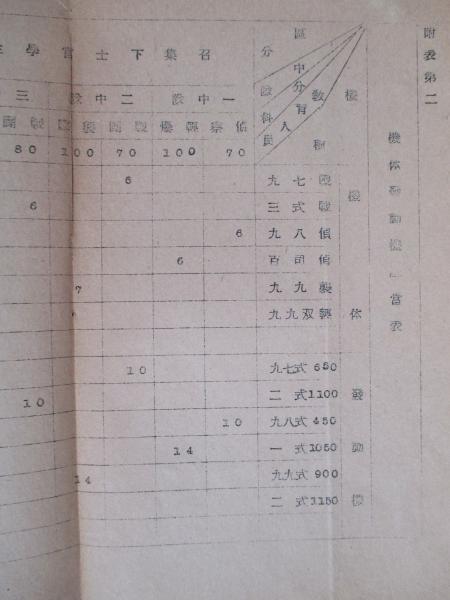 附表第二
機体發動機　當表
召集下士官學生
區分
中隊
教育
機種
人員
一中隊
二中隊
三
偵察
輕爆
戰鬪
襲擊
戰鬪
70
100
70
100
80
機体
九七戰 6
三式戰 6
九八偵 6
百司偵 6
九九襲 7
九九双輕
發動機
九七式 650 10
二式 1100 10
九八式 450 10
一式 1050 14
九九式 900 14
二式 1150